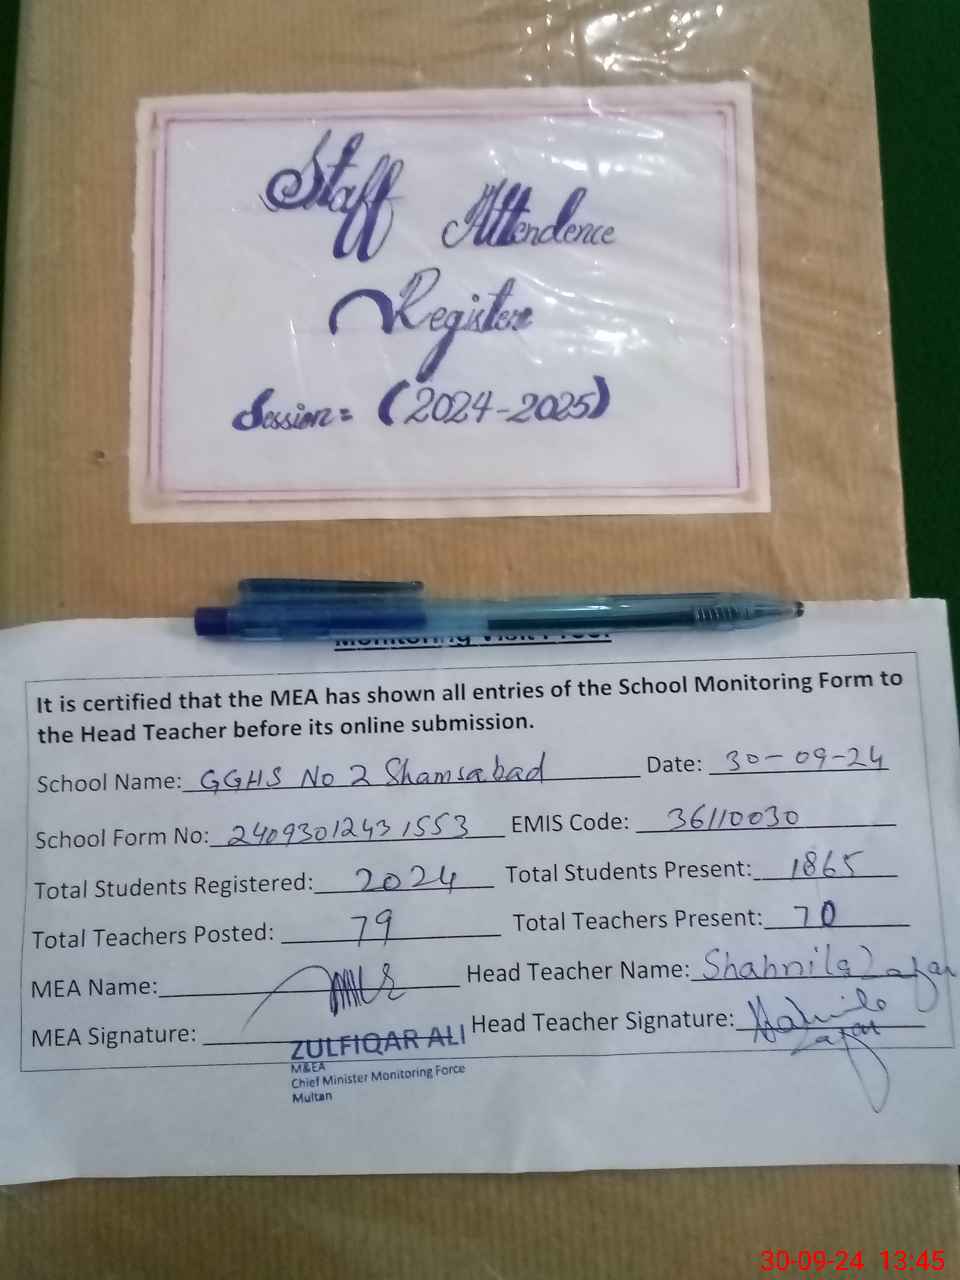 Staff Attendence
Register
Session= (2024-2025)
Monitoring Visit Proof
It is certified that the MEA has shown all entries of the School Monitoring Form to
the Head Teacher before its online submission.
School Name: GGHS No 2 Shamsabad Date: 30-09-24
School Form No: 24093012431553 EMIS Code: 36110030
Total Students Registered: 2024 Total Students Present: 1865
Total Teachers Posted: 79 Total Teachers Present: 70
MEA Name: Head Teacher Name: Shahnila Zafar
MEA Signature: Head Teacher Signature:
ZULFIQAR ALI
M&EA
Chief Minister Monitoring Force
Multan
30-09-24 13:45